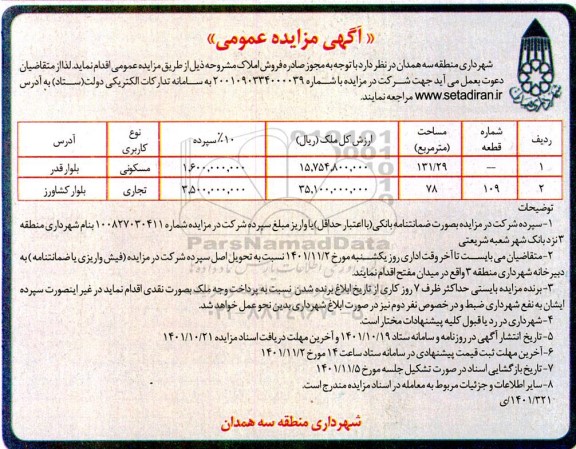 « آگهی مزایده عمومی»
شهرداری منطقه سه همدان در نظر دارد با توجه به مجوز صادره فروش املاک مشروحه ذیل از طریق مزایده عمومی اقدام نماید. لذا از متقاضیان
دعوت بعمل می آید جهت شرکت در مزایده با شماره ۲۰۰۱۰۹۰۳۳۴۰۰۰۰۳۹ به سامانه تدارکات الکتریکی دولت (ستاد) به آدرس
www.setadiran.ir مراجعه نمایند.
ردیف | شماره قطعه | مساحت (مترمربع) | ارزش کل ملک (ریال) | ۱۰٪ سپرده | نوع کاربری | آدرس
۱ | — | ۱۳۱/۲۹ | ۱۵,۷۵۴,۸۰۰,۰۰۰ | ۱,۶۰۰,۰۰۰,۰۰۰ | مسکونی | بلوار قدر
۲ | ۱۰۹ | ۷۸ | ۳۵,۱۰۰,۰۰۰,۰۰۰ | ۳,۵۰۰,۰۰۰,۰۰۰ | تجاری | بلوار کشاورز
توضیحات
۱- سپرده شرکت در مزایده بصورت ضمانتنامه بانکی (با اعتبار حداقل) یا واریز مبلغ سپرده شرکت در مزایده شماره ۱۰۰۸۲۷۰۳۰۴۱۱ بنام شهرداری منطقه
۳ نزد بانک شهر شعبه شریعتی
۲- متقاضیان می بایست تا آخر وقت اداری روز یکشنبه مورخ ۱۴۰۱/۱۱/۲ نسبت به تحویل اصل سپرده شرکت در مزایده (فیش واریزی یا ضمانتنامه) به
دبیرخانه شهرداری منطقه ۳ واقع در میدان مفتح اقدام نمایند.
۳- برنده مزایده بایستی حداکثر ظرف ۷ روز کاری از تاریخ ابلاغ برنده شدن نسبت به پرداخت وجه ملک بصورت نقدی اقدام نماید در غیر اینصورت سپرده
ایشان به نفع شهرداری ضبط و در خصوص نفر دوم نیز در صورت ابلاغ شهرداری بدین نحو عمل خواهد شد.
۴- شهرداری در رد یا قبول کلیه پیشنهادات مختار است.
۵- تاریخ انتشار آگهی در روزنامه و سامانه ستاد ۱۴۰۱/۱۰/۱۹ و آخرین مهلت دریافت اسناد مزایده ۱۴۰۱/۱۰/۲۱
۶- آخرین مهلت ثبت قیمت پیشنهادی در سامانه ستاد ساعت ۱۴ مورخ ۱۴۰۱/۱۱/۲
۷- تاریخ بازگشایی اسناد در صورت تشکیل جلسه مورخ ۱۴۰۱/۱۱/۵
۸- سایر اطلاعات و جزئیات مربوط به معامله در اسناد مزایده مندرج است.
۱۴۰۱/۳۲۱/ی
شهرداری منطقه سه همدان
ParsNamadData